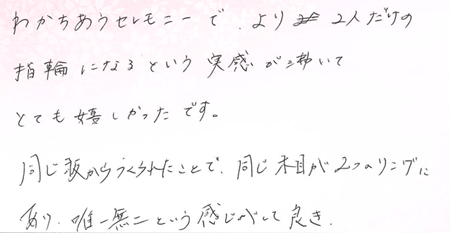 わかちあうセレモニーで、より2人だけの
指輪になるという実感が沸いて
とても嬉しかったです。
同じ板からつくられたことで、同じ木目が2つのリングに
あり、唯一無二という感じがして良き。